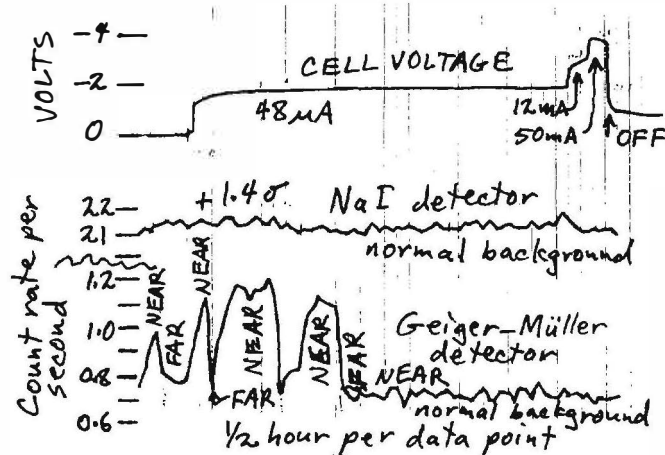 VOLTS
-4
-2
0
CELL VOLTAGE
48μA
12mA
50mA
OFF
Count rate per second
22
21
+1.4σ
NaI detector
normal background
1.2
1.0
0.8
0.6
NEAR
FAR
NEAR
FAR
NEAR
NEAR
FAR
NEAR
Geiger-Müller
detector
normal background
1/2 hour per data point